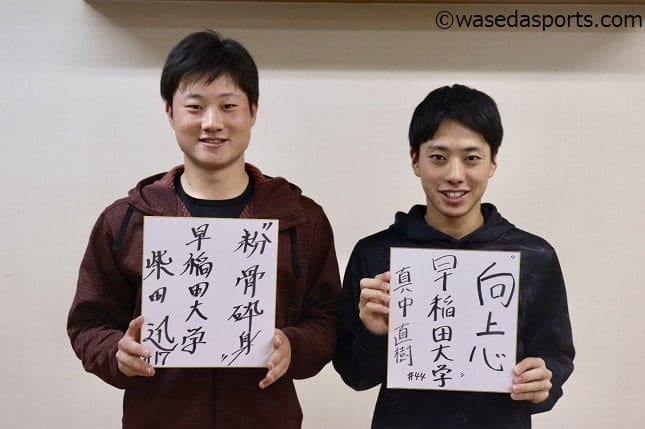 ©wasedasports.com
"粉骨砕身"
早稲田大学
柴田迅
#17
"向上心"
早稲田大学
真中直樹
#44